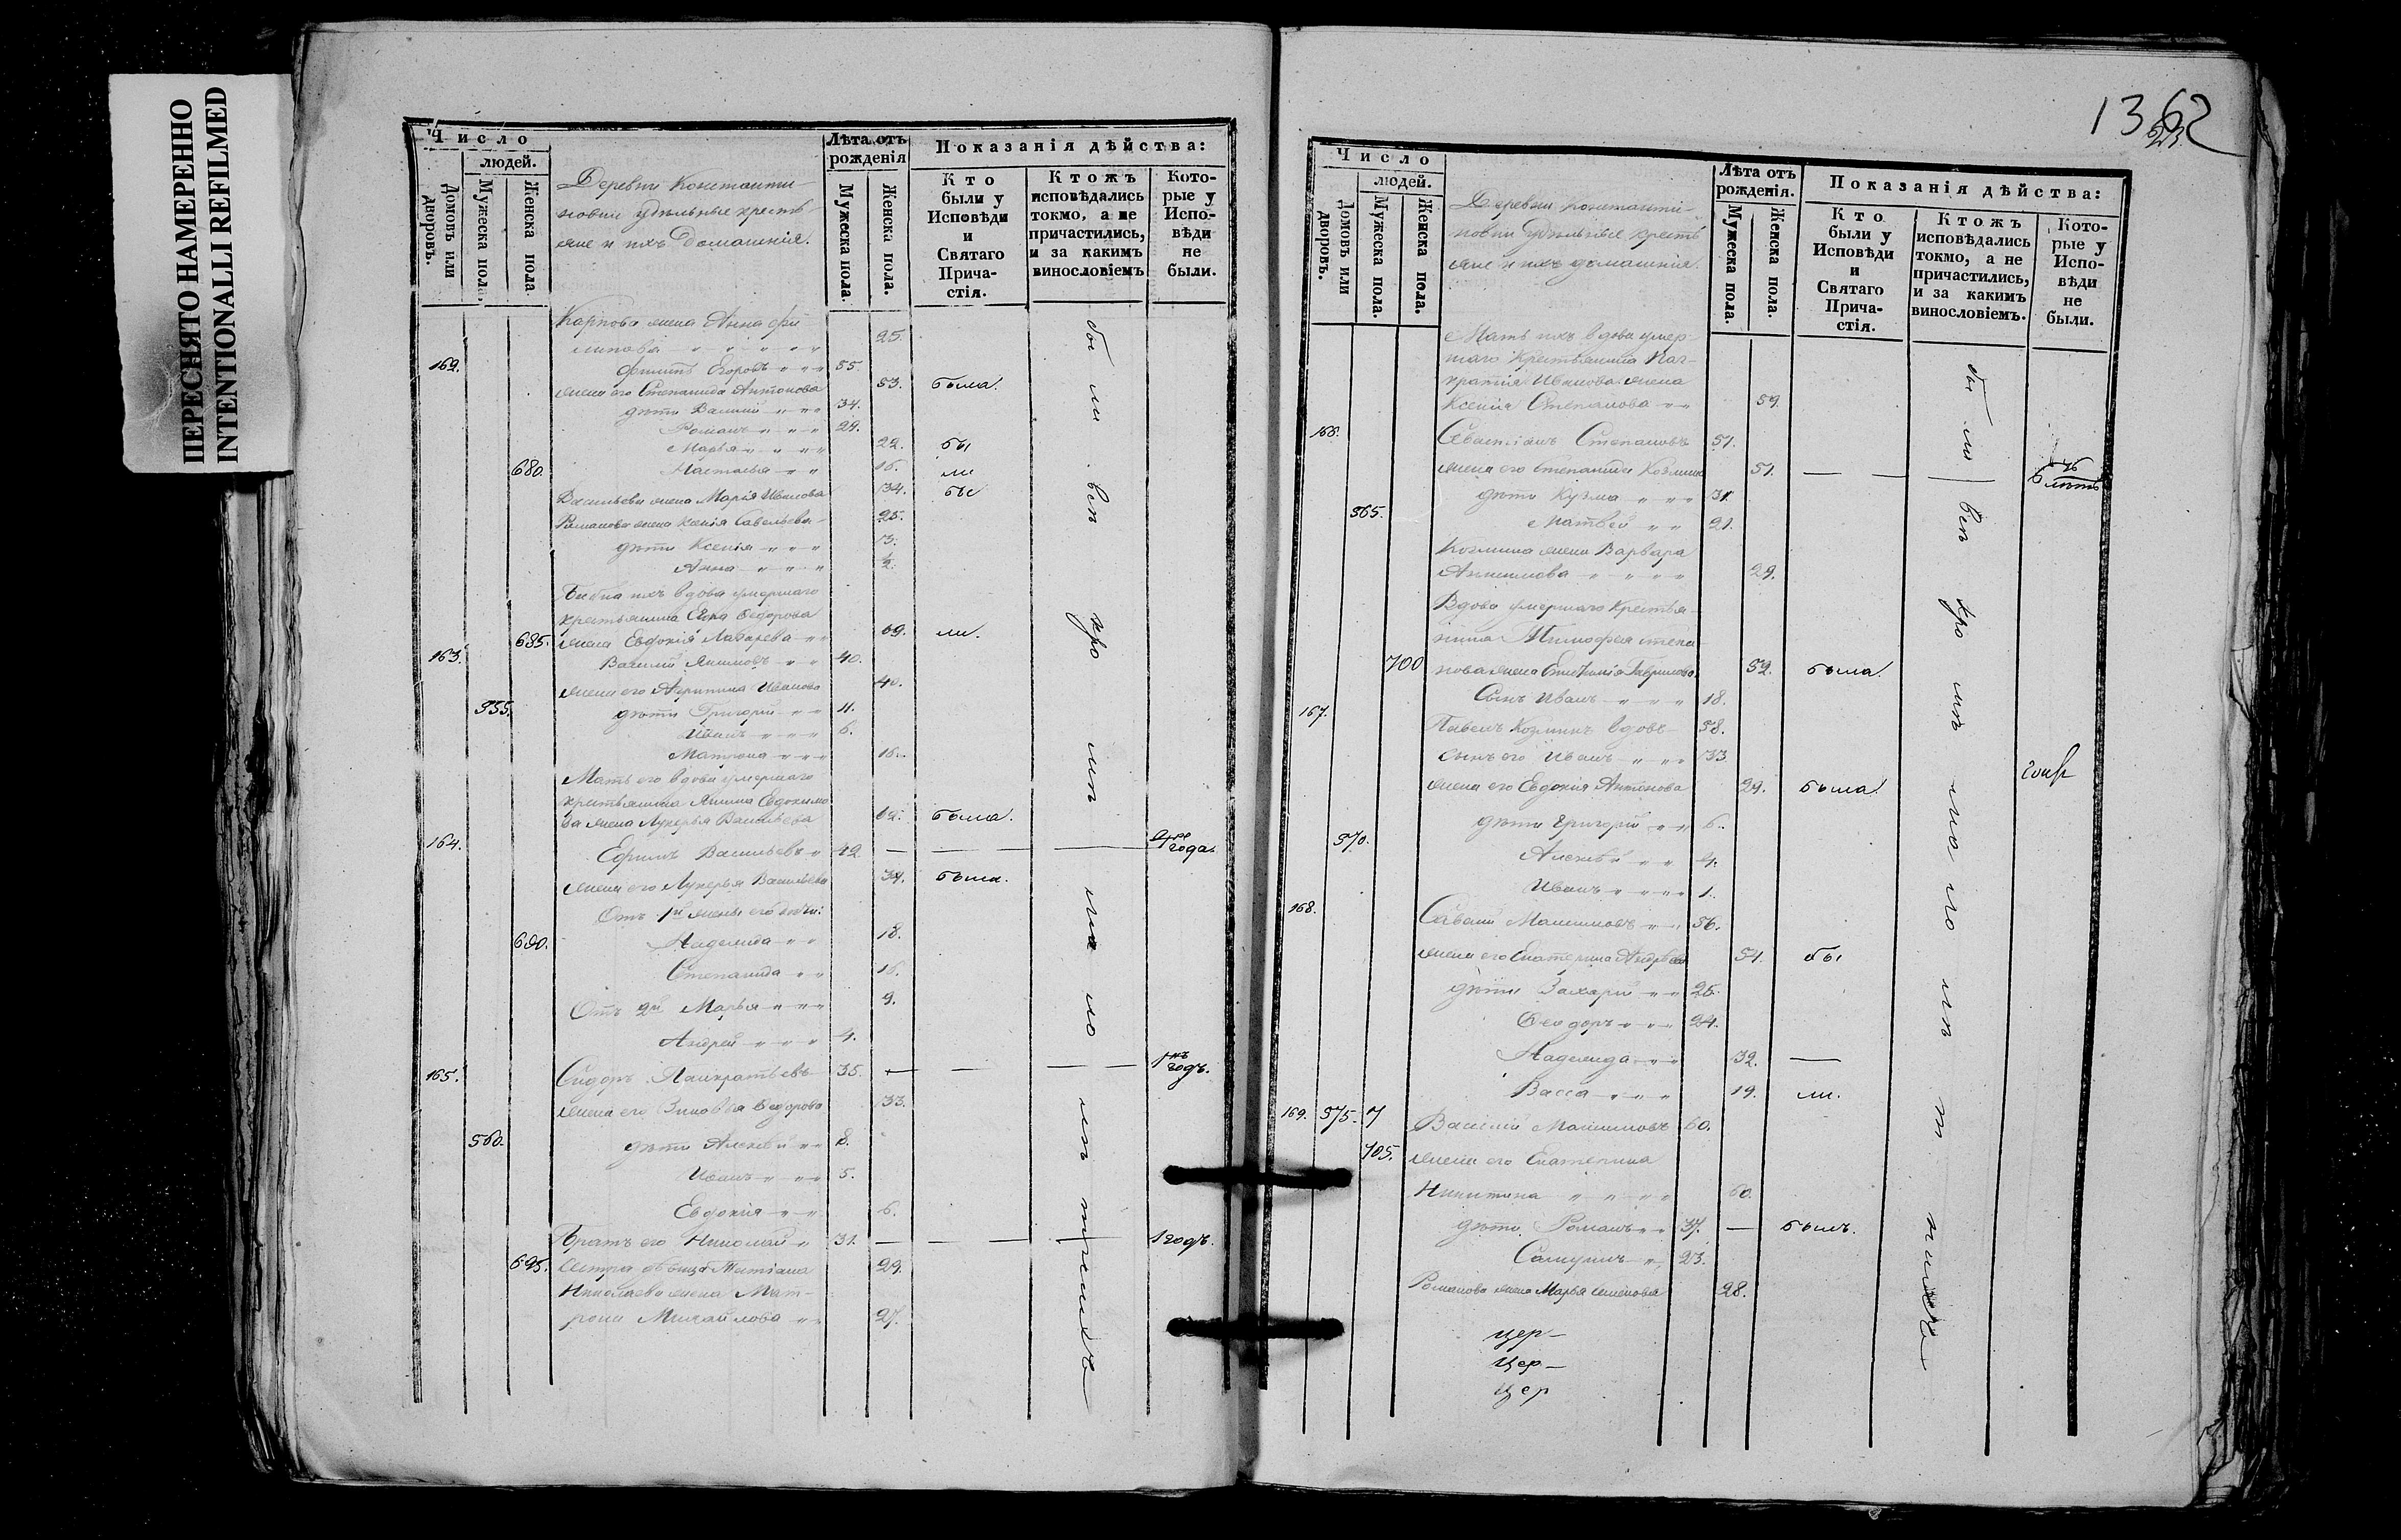 ПЕРЕСНЯТО НАМЕРЕННО
INTENTIONALLI REFILMED
Число
людей.
Домовъ или дворовъ.
Мужеска пола.
Женска пола.
Деревни Константи-
новки удѣльные кресть-
яне и ихъ домашнiе.
Лѣта отъ рожденiя
Мужеска пола.
Женска пола.
Показанiя дѣйства:
Кто были у Исповѣди и Святаго Прича-стiя.
Ктожъ исповѣдались токмо, а не причастились, и за какимъ винословiемъ
Кото-рые у Испо-вѣди не были.
Карпова жена Анна Фи-
липова 25.
162. Филипъ Егоровъ 55.
жена его Степанида Антонова 53. была.
дѣти Василiй 34.
Романъ 29.
Марья 22. бы
680. Настасья 16. ли
Васильева жена Марiя Иванова 34. бы
Романова жена Ксенiя Савельева 25.
дѣти Ксенiя 3.
Анна 2.
вдова умершаго
крестьянина Федорова
685. жена Евдокiя Лазарева 69. ли.
163. Василiй Акимовъ 40.
жена его Агрипина Иванова 40.
555. дѣти Григорiй 11.
Иванъ 6.
Матрона 16.
Мать его вдова умершаго
крестьянина Акима Евдокимо-
ва жена Лукерья Васильева 62. была.
164. Ефимъ Васильевъ 42. года.
жена его Лукерья Васильева 34. была.
Отъ 1й жены его дочь:
690. Надежда 18.
Степанида 16.
Отъ 2й Марья 9.
Андрей 4.
165. Сидоръ Панкратьевъ 35. 1 годъ.
жена его Зиновiя Федорова 33.
560. дѣти Алексѣй 8.
Иванъ 5.
Евдокiя 6.
Братъ его Николай 31. 1 годъ.
695. Сестра дѣвица Татiана 29.
Николаева жена Мат-
рона Михайлова 27.
были всѣ кромѣ малолѣтнихъ
1362
Число
людей.
Домовъ или дворовъ.
Мужеска пола.
Женска пола.
Деревни Константи-
новки удѣльные кресть-
яне и ихъ домашнiя.
Лѣта отъ рожденiя.
Мужеска пола.
Женска пола.
Показанiя дѣйства:
Кто были у Исповѣди и Святаго Прича-стiя.
Ктожъ исповѣдались токмо, а не причастились, и за какимъ винословiемъ.
Кото-рые у Испо-вѣди не были.
Мать ихъ вдова умер-
шаго крестьянина Пан-
кратiя Иванова жена
Ксенiя Степанова 59.
166. Севастiанъ Степановъ 51.
жена его Степанида Козмина 51. 6 лѣтъ
дѣти Кузма 31.
565. Матвей 21.
Козмина жена Варвара
Акимова 29.
Вдова умершаго крестья-
нина Тимофея Степа-
700 нова жена Гаврилова 52. была.
Сынъ Иванъ 18.
167. Павелъ Козминъ вдовъ 58.
сынъ его Иванъ 33
жена его Евдокiя Антонова 29. была.
дѣти Григорiй 6.
570. Алексѣй 4.
Иванъ 1.
168. Савелiй Максимовъ 56.
жена его Екатерина Андреева 54. бы
дѣти Захарiй 25.
Феодоръ 24.
Надежда 32.
Васса 19. ли.
169. 575. Василiй Максимовъ 60.
705. жена его Екатерина
Никитина 60.
дѣти Романъ 37. былъ.
23.
Романова жена Марья Семенова 28.
цер-
цер-
цер
были всѣ кромѣ малолѣт